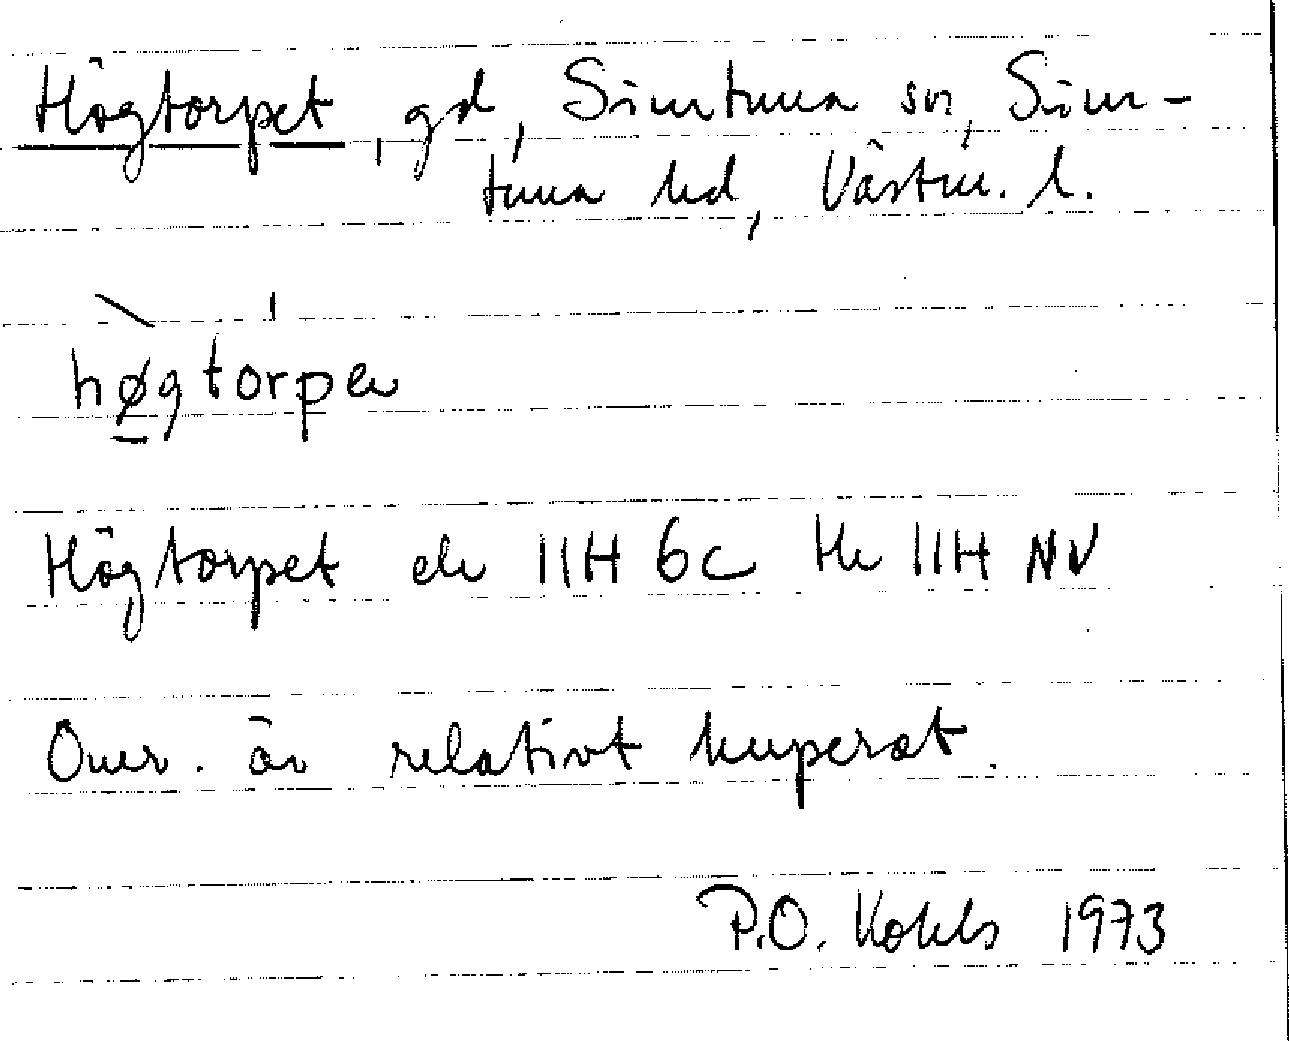 Högtorpet, gd, Simtuna sn, Sim-
tuna hd, Västm. l.
høgtorpe
Högtorpet ek 11H 6c tk 11H NV
Omr. är relativt kuperat.
P.O. Kohls 1973